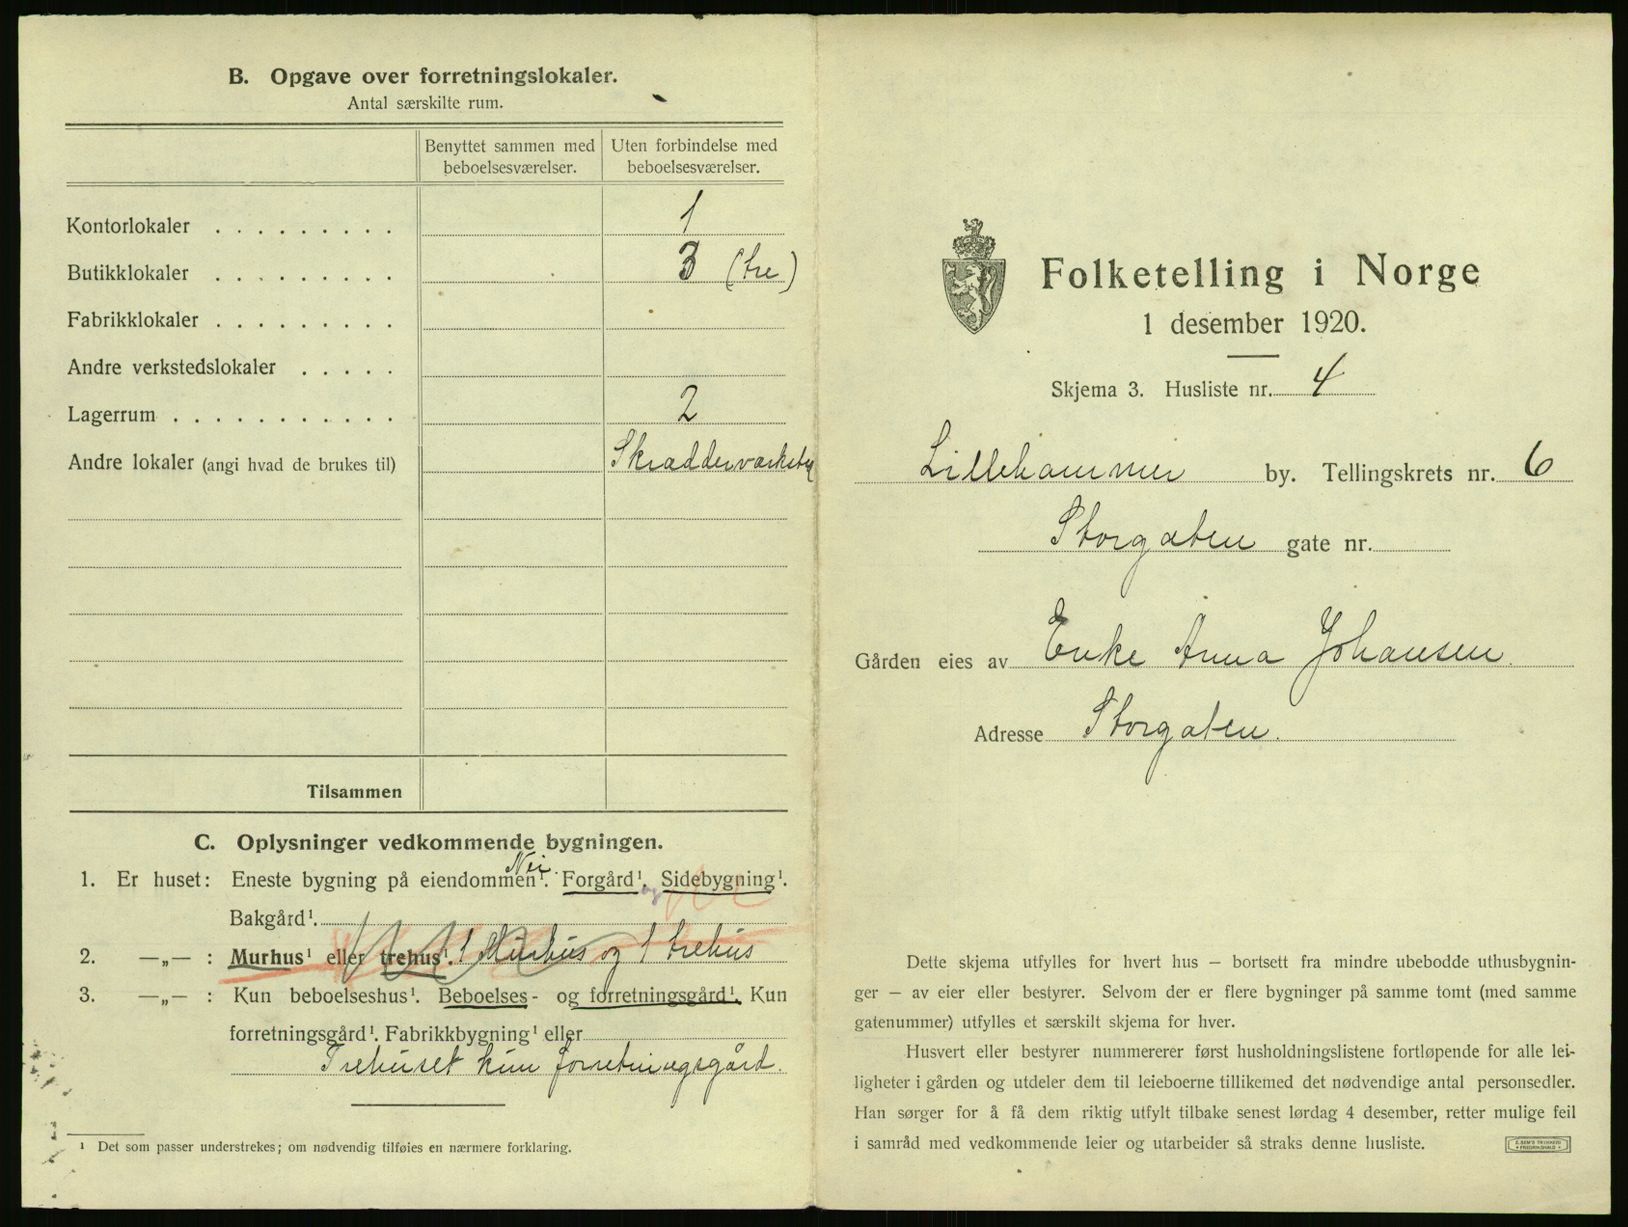 B. Opgave over forretningslokaler.
Antal særskilte rum.
Benyttet sammen med beboelsesværelser.
Uten forbindelse med beboelsesværelser.
Kontorlokaler . . . . . . . . . 1
Butikklokaler . . . . . . . . . 3 (tre)
Fabrikklokaler . . . . . . . . .
Andre verkstedslokaler . . . . .
Lagerrum . . . . . . . . . . . 2
Andre lokaler (angi hvad de brukes til) Skræddervækste
Tilsammen
C. Oplysninger vedkommende bygningen.
Nei
1. Er huset: Eneste bygning på eiendommen¹. Forgård¹. og Sidebygning¹.
Bakgård¹.
2. —„— : Murhus¹ eller trehus¹. 1 Murhus og 1 trehus
3. —„— : Kun beboelseshus¹. Beboelses- og forretningsgård¹. Kun
forretningsgård¹. Fabrikkbygning¹ eller
Trehuset kun forretningsgård.
¹ Det som passer understrekes; om nødvendig tilføies en nærmere forklaring.
Folketelling i Norge
1 desember 1920.
Skjema 3. Husliste nr. 4
Lillehammer by. Tellingskrets nr. 6
Storgaten gate nr.
Gården eies av Enke Anna Johansen.
Adresse Storgaten.
Dette skjema utfylles for hvert hus – bortsett fra mindre ubebodde uthusbygnin-
ger – av eier eller bestyrer. Selvom der er flere bygninger på samme tomt (med samme
gatenummer) utfylles et særskilt skjema for hver.
Husvert eller bestyrer nummererer først husholdningslistene fortløpende for alle lei-
ligheter i gården og utdeler dem til leieboerne tillikemed det nødvendige antal personsedler.
Han sørger for å få dem riktig utfylt tilbake senest lørdag 4 desember, retter mulige feil
i samråd med vedkommende leier og utarbeider så straks denne husliste.